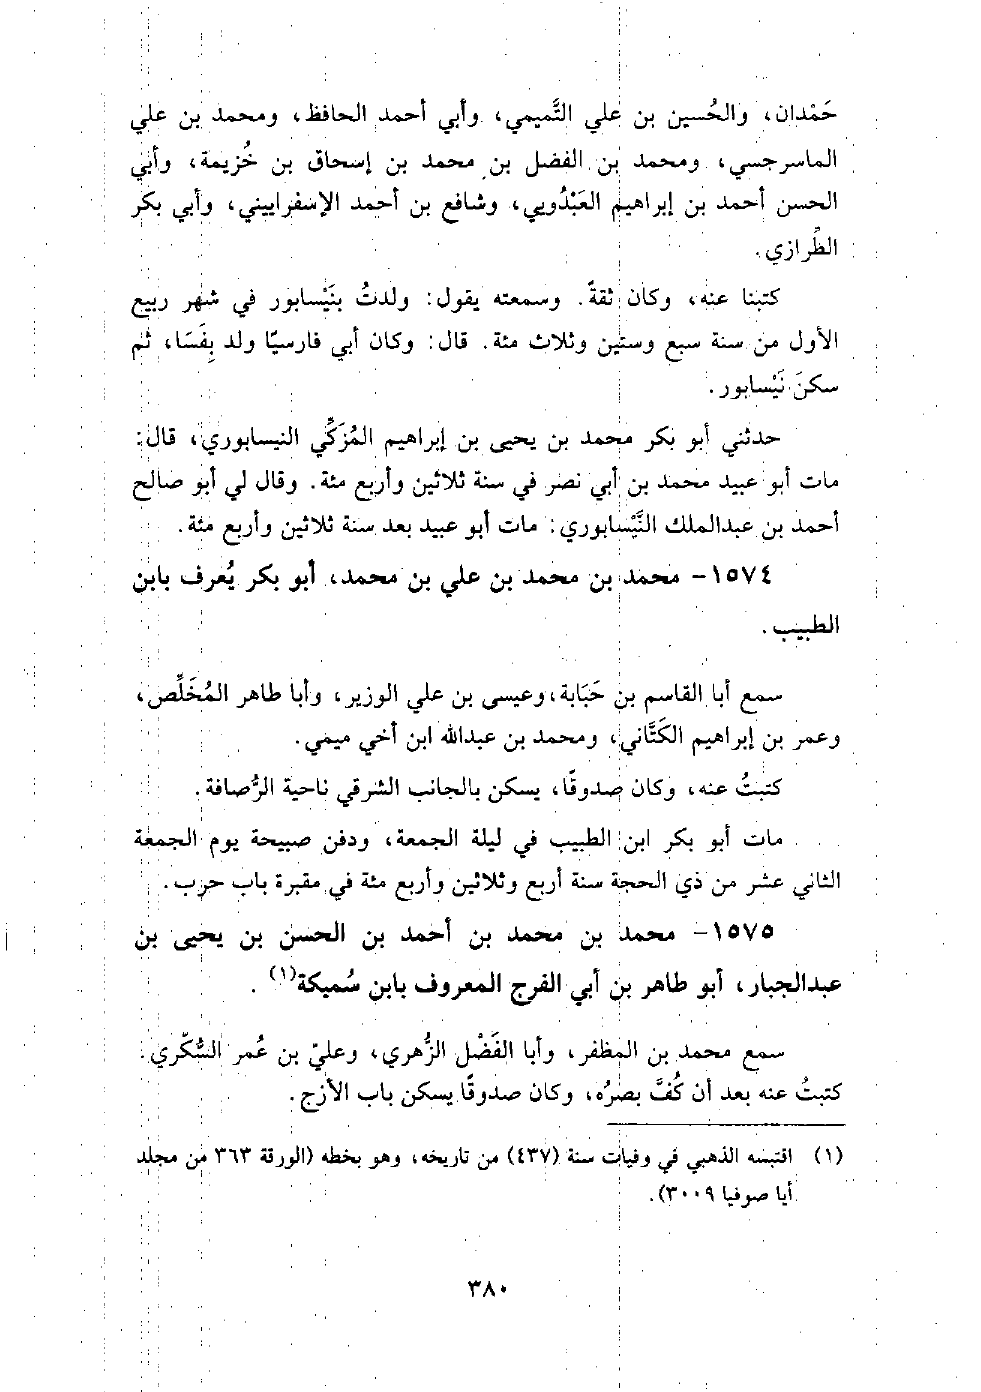 حَمْدان، والحُسين بن علي التَّميمي، وأبي أحمد الحافظ، ومحمد بن علي
الماسرجسي، ومحمد بن الفضل بن محمد بن إسحاق بن خُزيمة، وأبي
الحسن أحمد بن إبراهيم العَبْدُويي، وشافع بن أحمد الإسفراييني، وأبي بكر
الطِّرازي.
كتبنا عنه، وكان ثقةً. وسمعته يقول: ولدتُ بنَيْسابور في شهر ربيع
الأول من سنة سبع وستين وثلاث مئة. قال: وكان أبي فارسيًا ولد بِفَسَا، ثم
سكنَ نَيْسابور.
حدثني أبو بكر محمد بن يحيى بن إبراهيم المُزَكِّي النيسابوري، قال:
مات أبو عبيد محمد بن أبي نصر في سنة ثلاثين وأربع مئة. وقال لي أبو صالح
أحمد بن عبدالملك النَّيْسابوري: مات أبو عبيد بعد سنة ثلاثين وأربع مئة.
١٥٧٤- محمد بن محمد بن علي بن محمد، أبو بكر يُعرف بابن
الطبيب.
سمع أبا القاسم بن حَبَابة، وعيسى بن علي الوزير، وأبا طاهر المُخَلِّص،
وعمر بن إبراهيم الكَتَّاني، ومحمد بن عبدالله ابن أخي ميمي.
كتبتُ عنه، وكان صدوقًا، يسكن بالجانب الشرقي ناحية الرُّصافة.
مات أبو بكر ابن الطبيب في ليلة الجمعة، ودفن صبيحة يوم الجمعة
الثاني عشر من ذي الحجة سنة أربع وثلاثين وأربع مئة في مقبرة باب حرب.
١٥٧٥- محمد بن محمد بن أحمد بن الحسن بن يحيى بن
عبدالجبار، أبو طاهر بن أبي الفرج المعروف بابن سُميكة(١).
سمع محمد بن المظفر، وأبا الفَضْل الزُّهري، وعليّ بن عُمر السُّكّري.
كتبتُ عنه بعد أن كُفَّ بصرُه، وكان صدوقًا يسكن باب الأزج.
(١) اقتبسه الذهبي في وفيات سنة (٤٣٧) من تاريخه، وهو بخطه (الورقة ٣٦٣ من مجلد
أيا صوفيا ٣٠٠٩).
٣٨٠